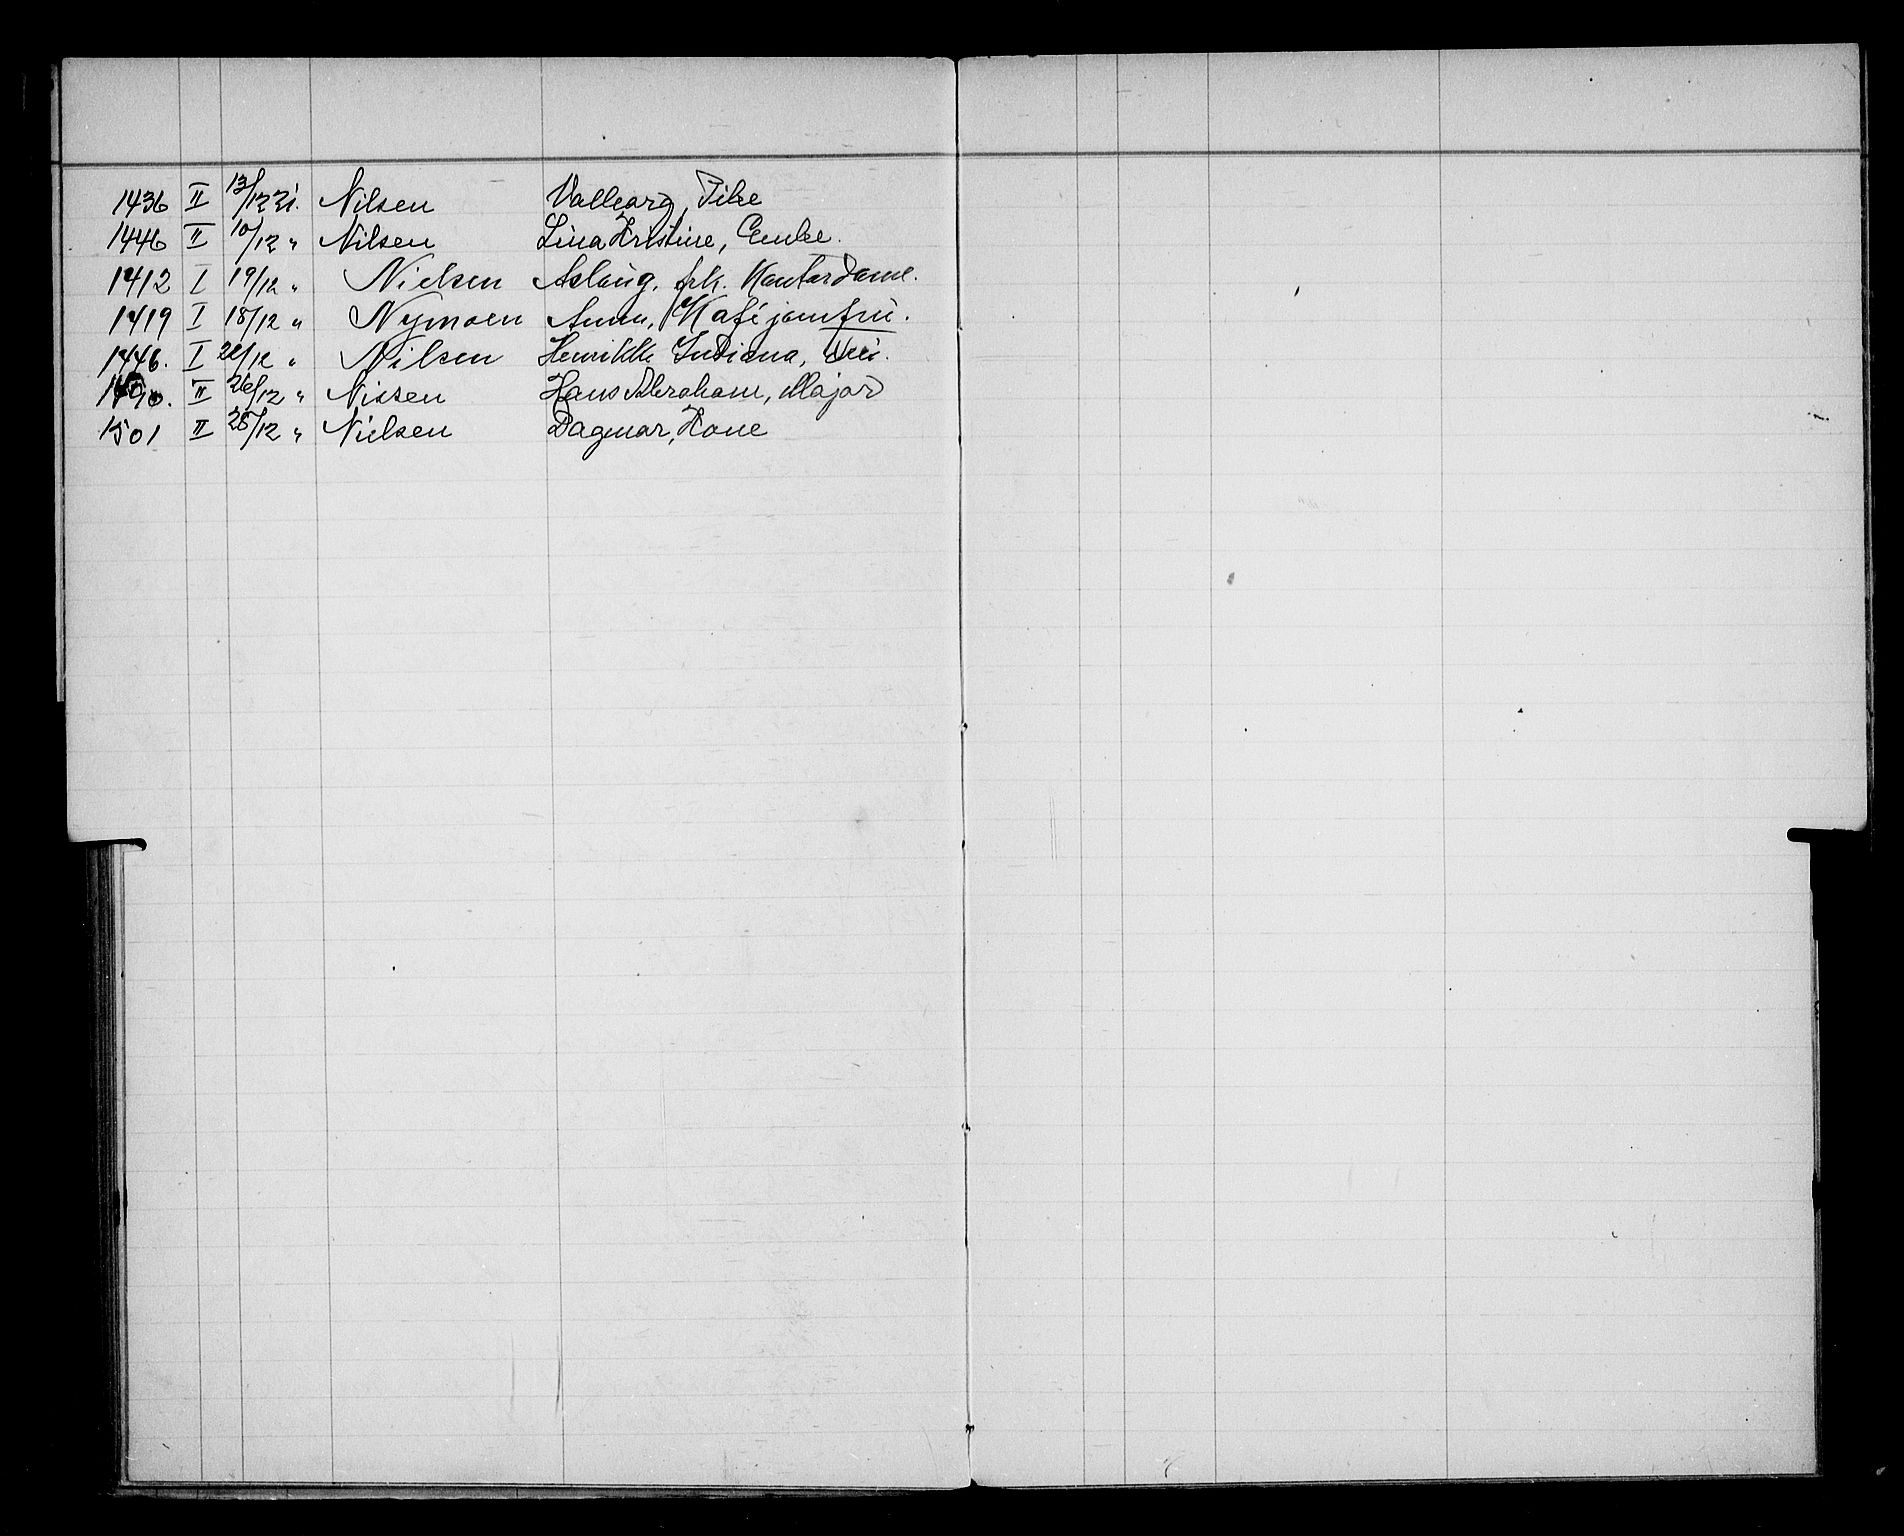 1436 II 13/12 21. Nilsen Valborg, Pike
1446 II 10/12 " Nilsen Lina Kristine, Enke.
1412 I 19/12 " Nielsen Aslaug, frk. Kontordame.
1419 I 18/12 " Nymoen Anna, Kaféjomfru.
1446. I 22/12 " Nilsen Henrikke Indiana,
II 26/12 " Nissen Hans Abraham, Major
1501 II 28/12 " Nielsen Dagmar, Kone